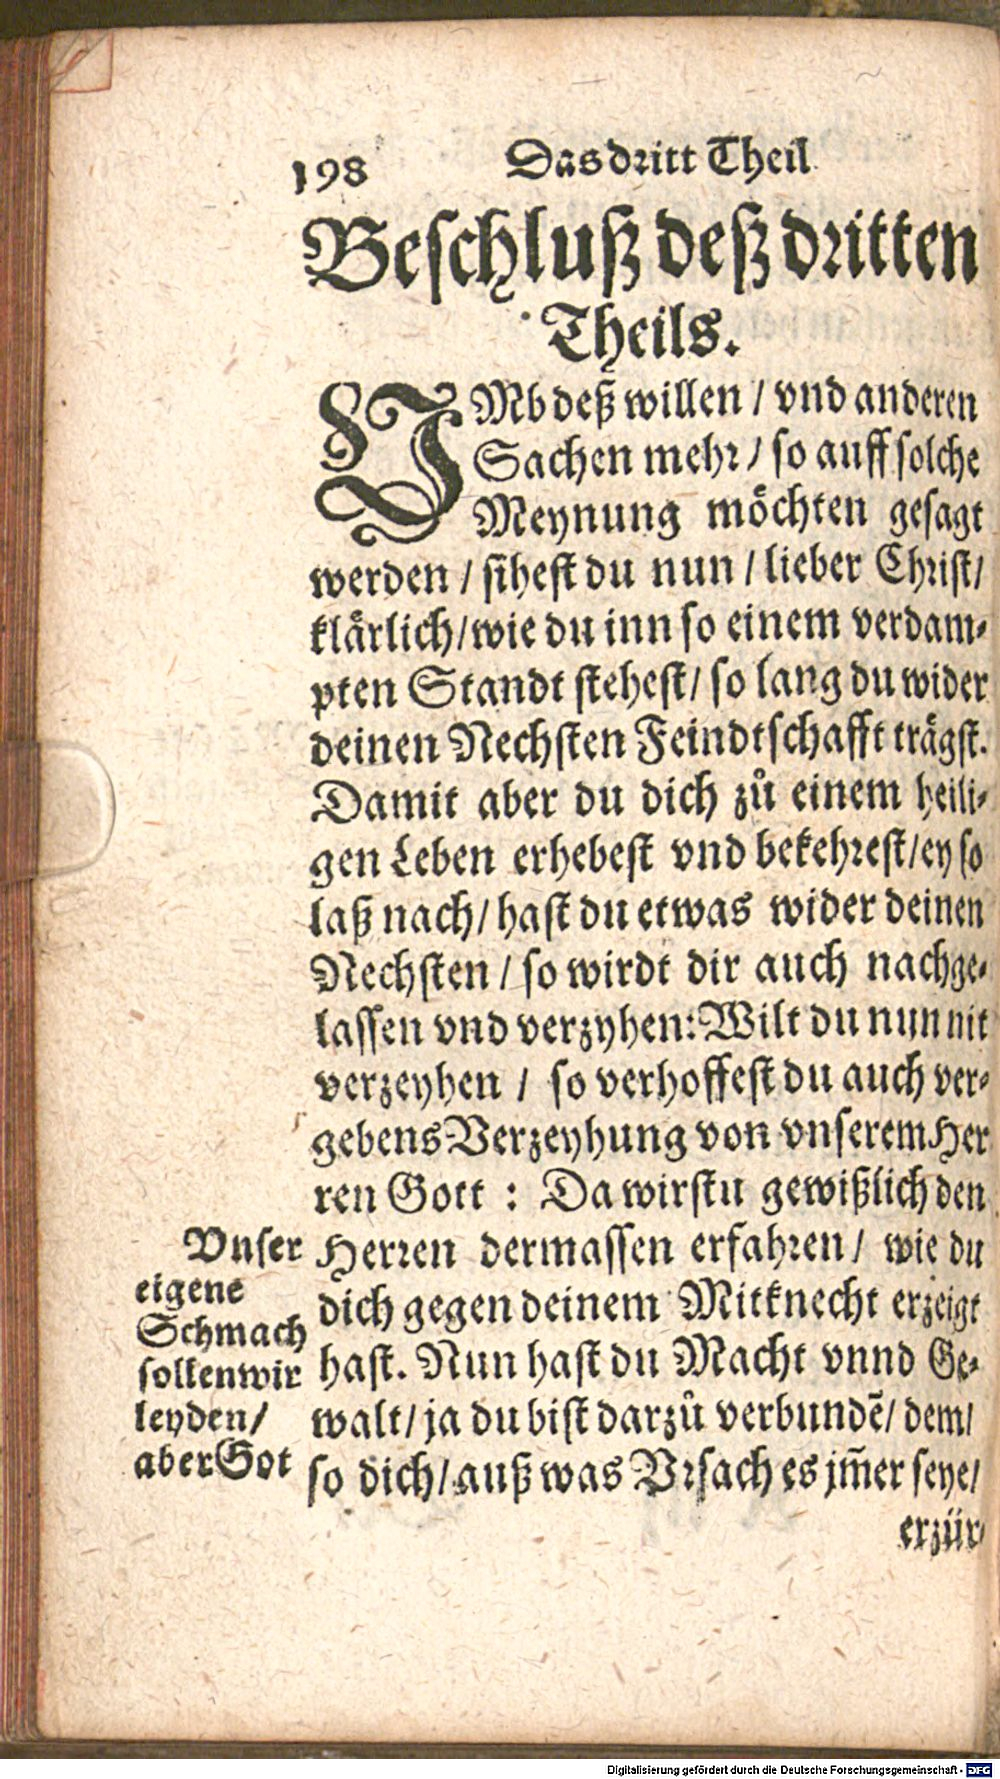 198 Das dritt Theil
Beschluß deß dritten
Theils.
VMb deß willen / vnd anderen
Sachen mehr / so auff solche
Meynung möchten gesagt
werden / sihest du nun / lieber Christ /
klärlich / wie du inn so einem verdam-
pten Standt stehest / so lang du wider
deinen Nechsten Feindtschafft trägst.
Damit aber du dich zů einem heili-
gen Leben erhebest vnd bekehrest / ey so
laß nach / hast du etwas wider deinen
Nechsten / so wirdt dir auch nachge-
lassen vnd verzyhen: Wilt du nun nit
verzeyhen / so verhoffest du auch ver-
gebens Verzeyhung von vnserem Her
ren Gott : Da wirstu gewißlich den
Herren dermassen erfahren / wie du
dich gegen deinem Mitknecht erzeigt
hast. Nun hast du Macht vnnd Ge-
walt / ja du bist darzů verbundẽ / dem /
so dich / auß was Vrsach es jm̃er seye /
erzür-
Vnser
eigene
Schmach
sollen wir
leyden /
aber Got
Digitalisierung gefördert durch die Deutsche Forschungsgemeinschaft - DFG